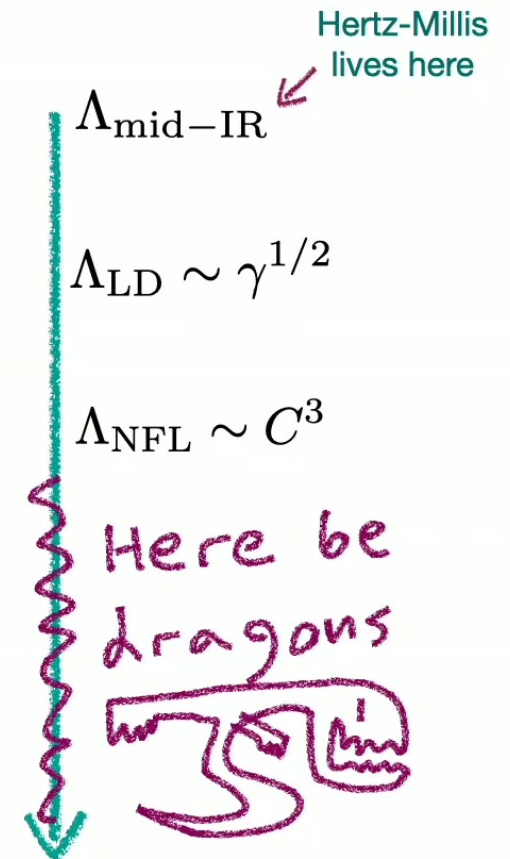 Hertz-Millis
lives here
Λmid−IR
ΛLD ∼ γ^1/2
ΛNFL ∼ C^3
Here be
dragons